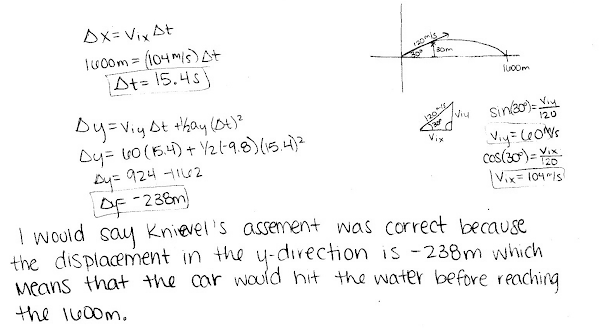 Δx = Vix Δt
1600m = (104 m/s) Δt
Δt = 15.4s
120m/s
30°
30m
1600m
Δy = Viy Δt + ½ay (Δt)²
Δy = 60 (15.4) + 1/2 (-9.8)(15.4)²
Δy = 924 - 1162
Δ= -238m
120m/s
30°
Viy
Vix
sin(30°) = Viy/120
Viy = 60m/s
cos(30°) = Vix/120
Vix = 104m/s
I would say Knievel's assement was correct because
the displacement in the y-direction is -238m which
means that the car would hit the water before reaching
the 1600m.